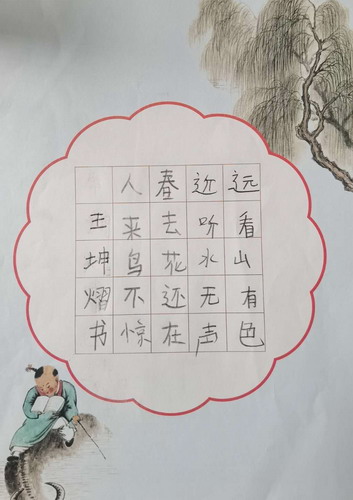 远看山有色
近听水无声
春去花还在
人来鸟不惊
王坤熠书